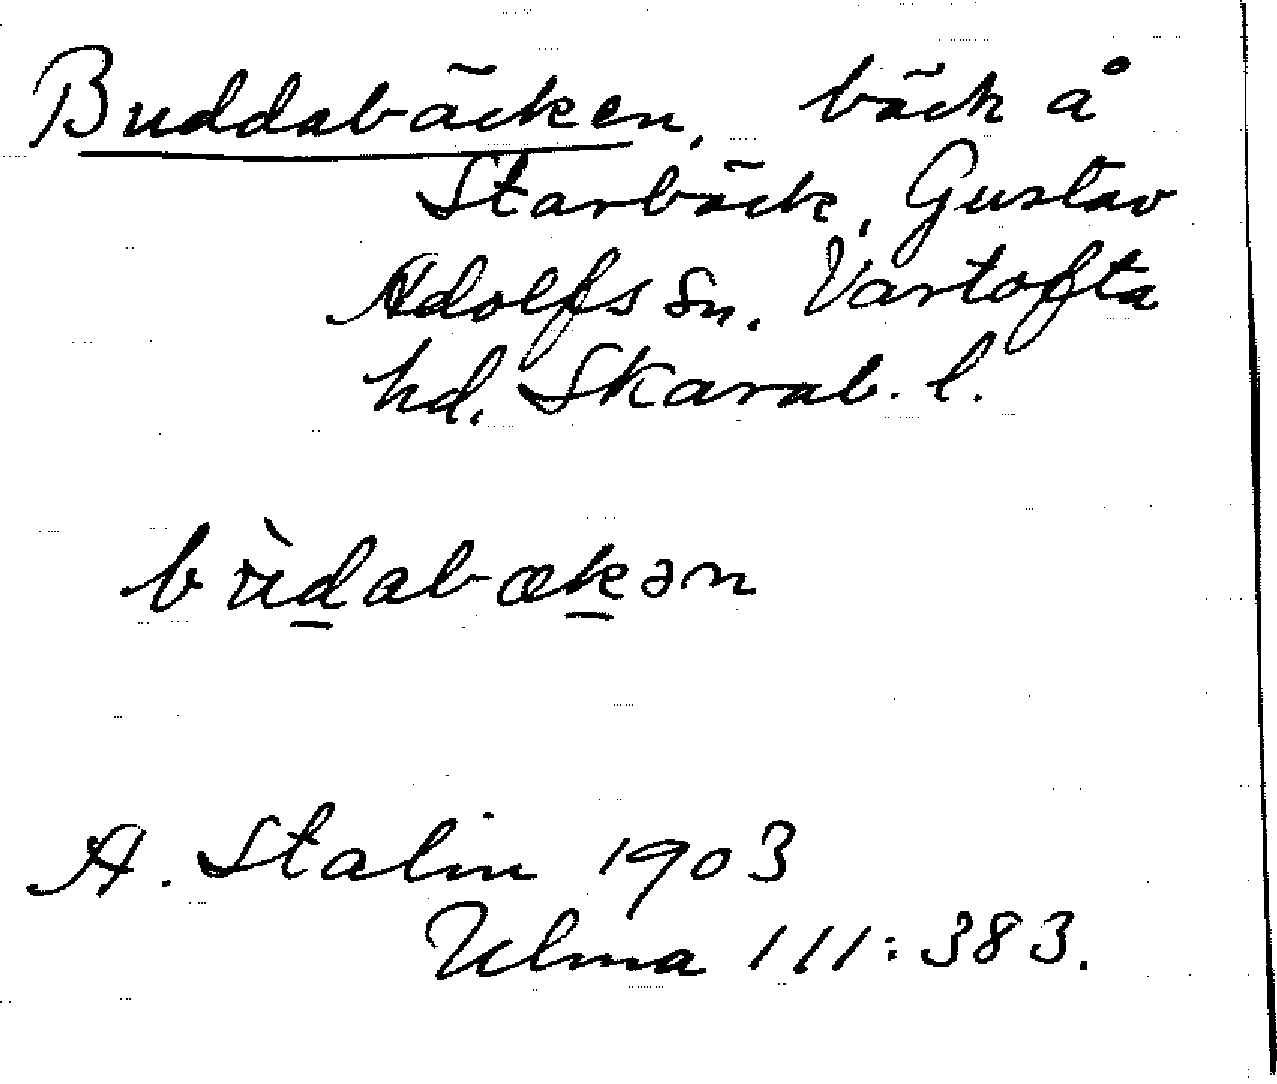 Buddabäcken, bäck å
Starbäck, Gustav
Adolfs sn. Vartofta
hd. Skarab. l.
bùdabækən
A. Stalin 1903
Ulma 111:383.